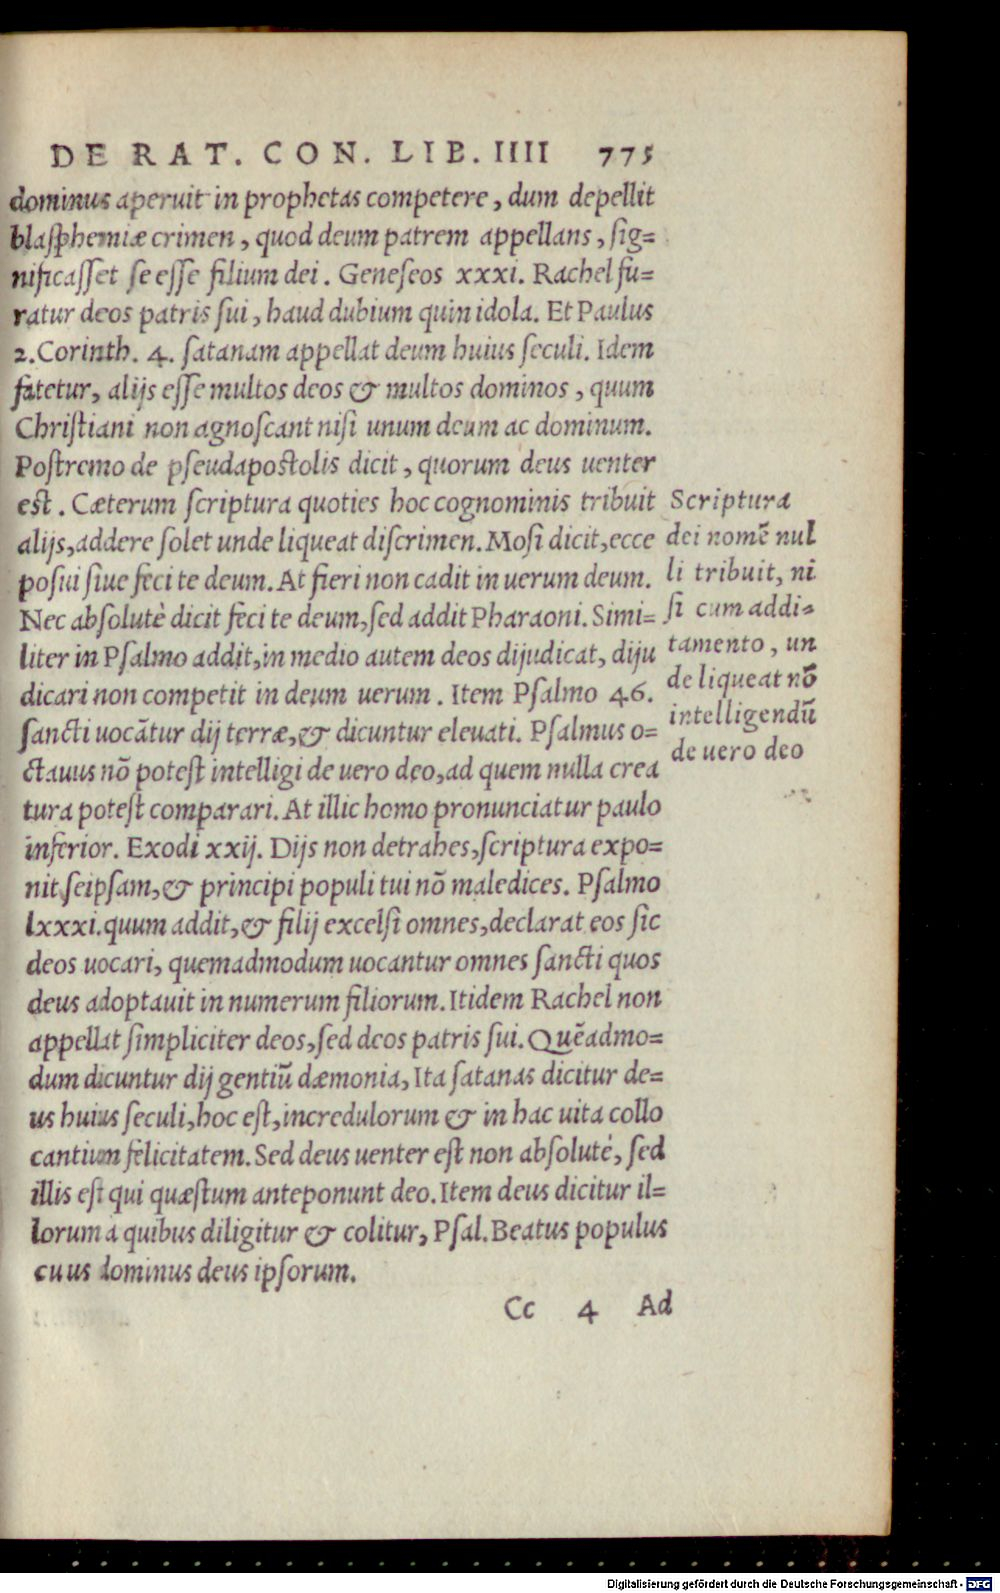 DE RAT. CON. LIB. IIII 775
dominus aperuit in prophetas competere, dum depellit
blasphemiæ crimen, quod deum patrem appellans, sig=
nificasset se esse filium dei. Geneseos xxxi. Rachel fu=
ratur deos patris sui, haud dubium quin idola. Et Paulus
2. Corinth. 4. satanam appellat deum huius seculi. Idem
fatetur, alijs esse multos deos & multos dominos, quum
Christiani non agnoscant nisi unum deum ac dominum.
Postremo de pseudapostolis dicit, quorum deus uenter
est. Cæterum scriptura quoties hoc cognominis tribuit
alijs, addere solet unde liqueat discrimen. Mosi dicit, ecce
posui siue feci te deum. At fieri non cadit in uerum deum.
Nec absolutè dicit feci te deum, sed addit Pharaoni. Simi=
liter in Psalmo addit, in medio autem deos dijudicat, diju
dicari non competit in deum uerum. Item Psalmo 46.
sancti uocātur dij terræ, & dicuntur eleuati. Psalmus o=
ctauus nō potest intelligi de uero deo, ad quem nulla crea
tura potest comparari. At illic homo pronunciatur paulo
inferior. Exodi xxij. Dijs non detrahes, scriptura expo=
nit seipsam, & principi populi tui nō maledices. Psalmo
lxxxi. quum addit, & filij excelsi omnes, declarat eos sic
deos uocari, quemadmodum uocantur omnes sancti quos
deus adoptauit in numerum filiorum. Itidem Rachel non
appellat simpliciter deos, sed deos patris sui. Quēadmo=
dum dicuntur dij gentiū dæmonia, Ita satanas dicitur de=
us huius seculi, hoc est, incredulorum & in hac uita collo
cantium felicitatem. Sed deus uenter est non absolutè, sed
illis est qui quæstum anteponunt deo. Item deus dicitur il=
lorum a quibus diligitur & colitur, Psal. Beatus populus
cuius dominus deus ipsorum.
Scriptura
dei nomē nul
li tribuit, ni
si cum addi=
tamento, un
de liqueat nō
intelligendū
de uero deo
Cc 4 Ad
Digitalisierung gefördert durch die Deutsche Forschungsgemeinschaft - DFG